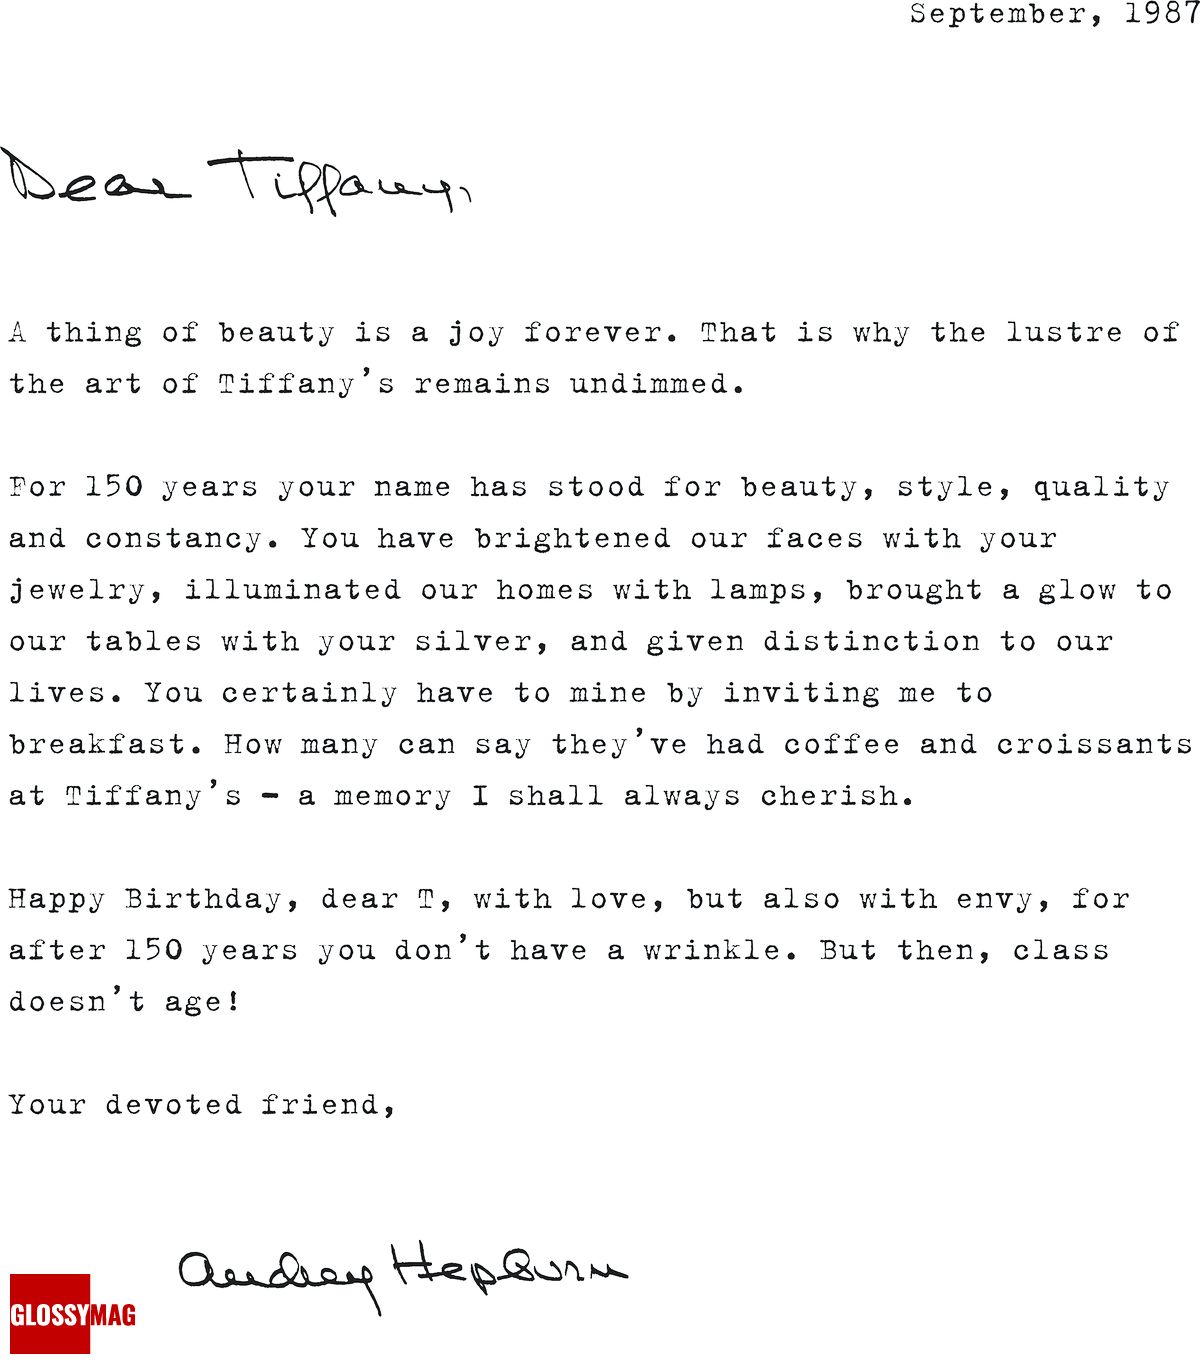 September, 1987
Dear Tiffany,
A thing of beauty is a joy forever. That is why the lustre of
the art of Tiffany’s remains undimmed.
For 150 years your name has stood for beauty, style, quality
and constancy. You have brightened our faces with your
jewelry, illuminated our homes with lamps, brought a glow to
our tables with your silver, and given distinction to our
lives. You certainly have to mine by inviting me to
breakfast. How many can say they’ve had coffee and croissants
at Tiffany’s – a memory I shall always cherish.
Happy Birthday, dear T, with love, but also with envy, for
after 150 years you don’t have a wrinkle. But then, class
doesn’t age!
Your devoted friend,
Audrey Hepburn
GLOSSYMAG